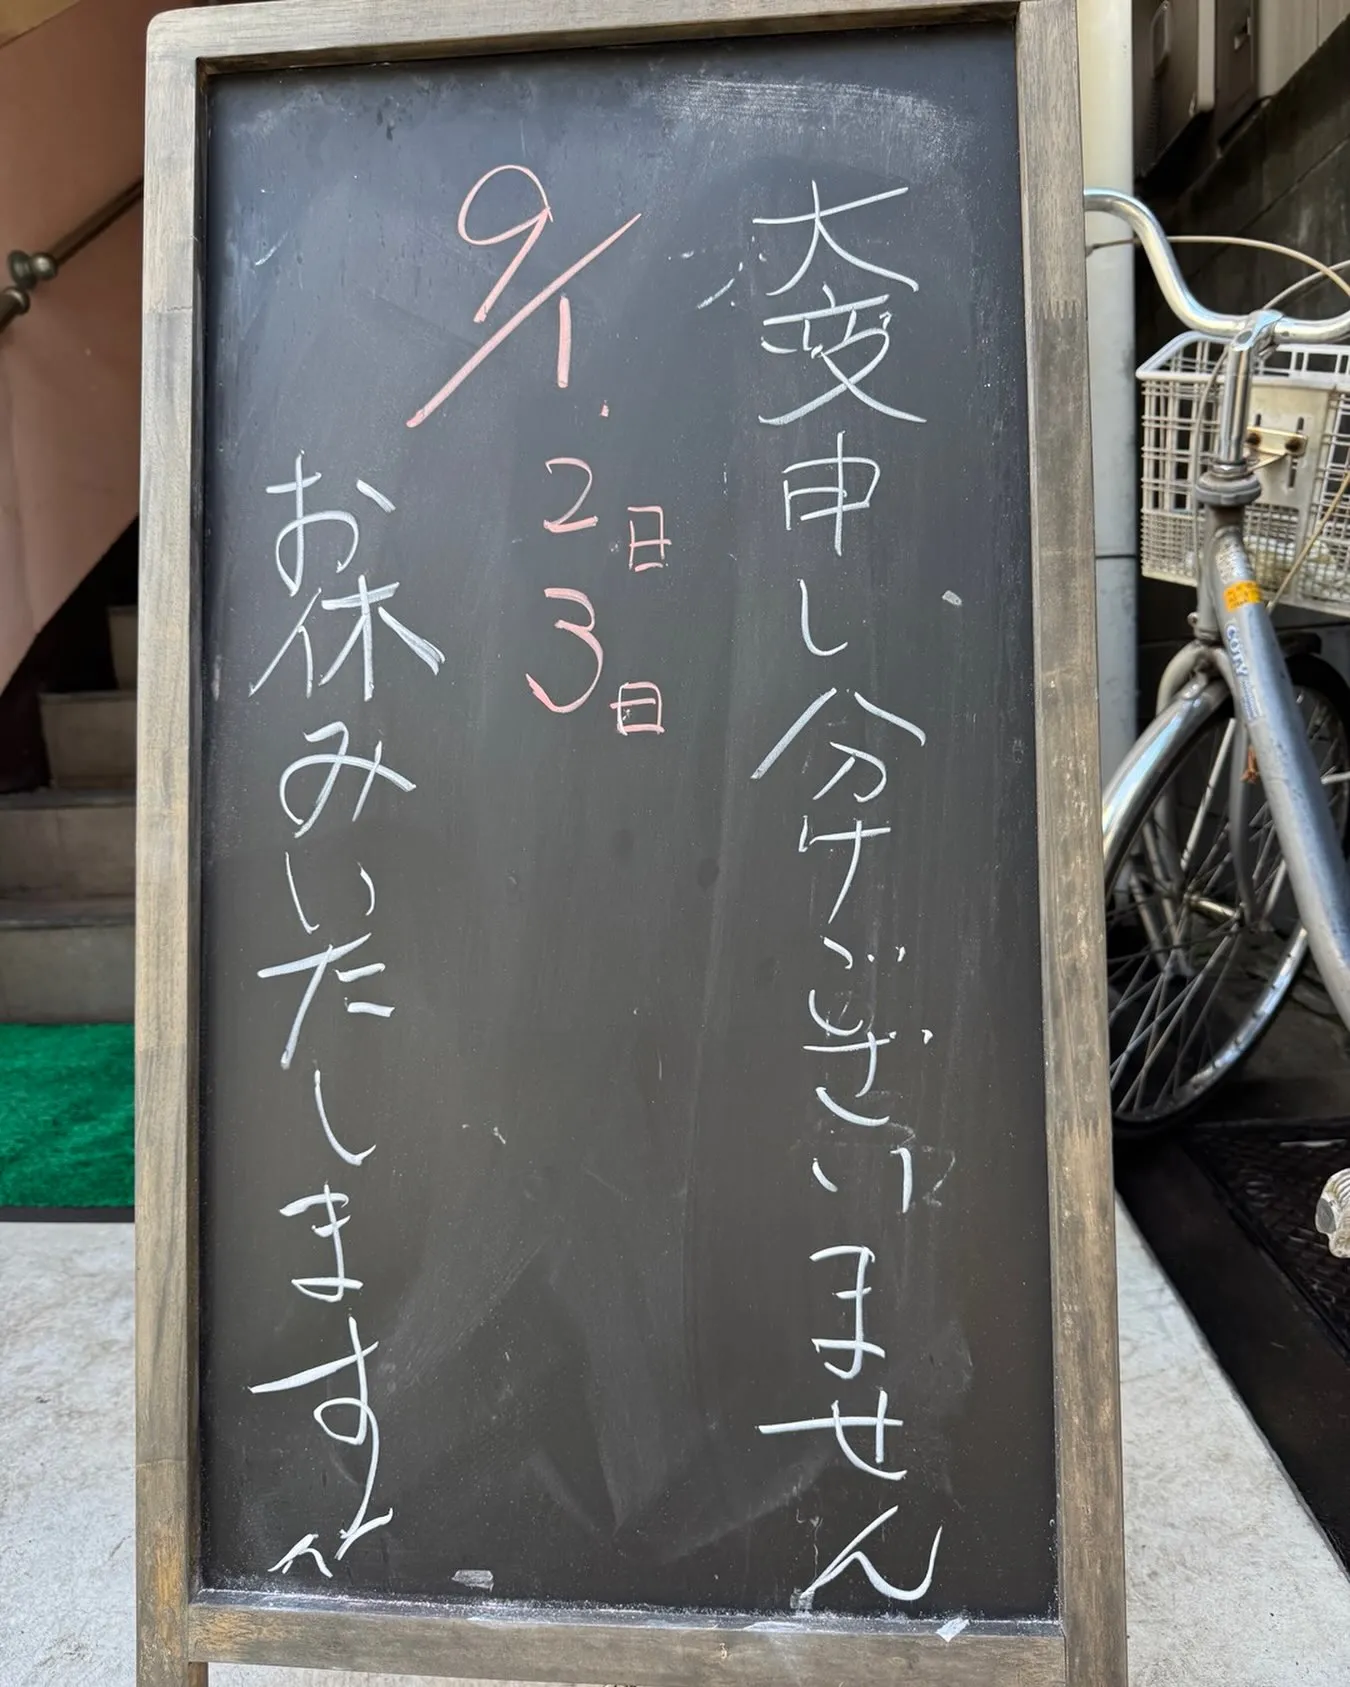 大変申し分けございません
9/1.2日3日
お休みいたします